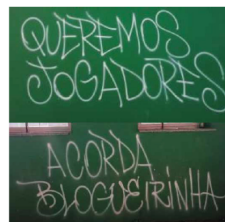 QUEREMOS
JOGADORES
ACORDA
BLOGUEIRINHA